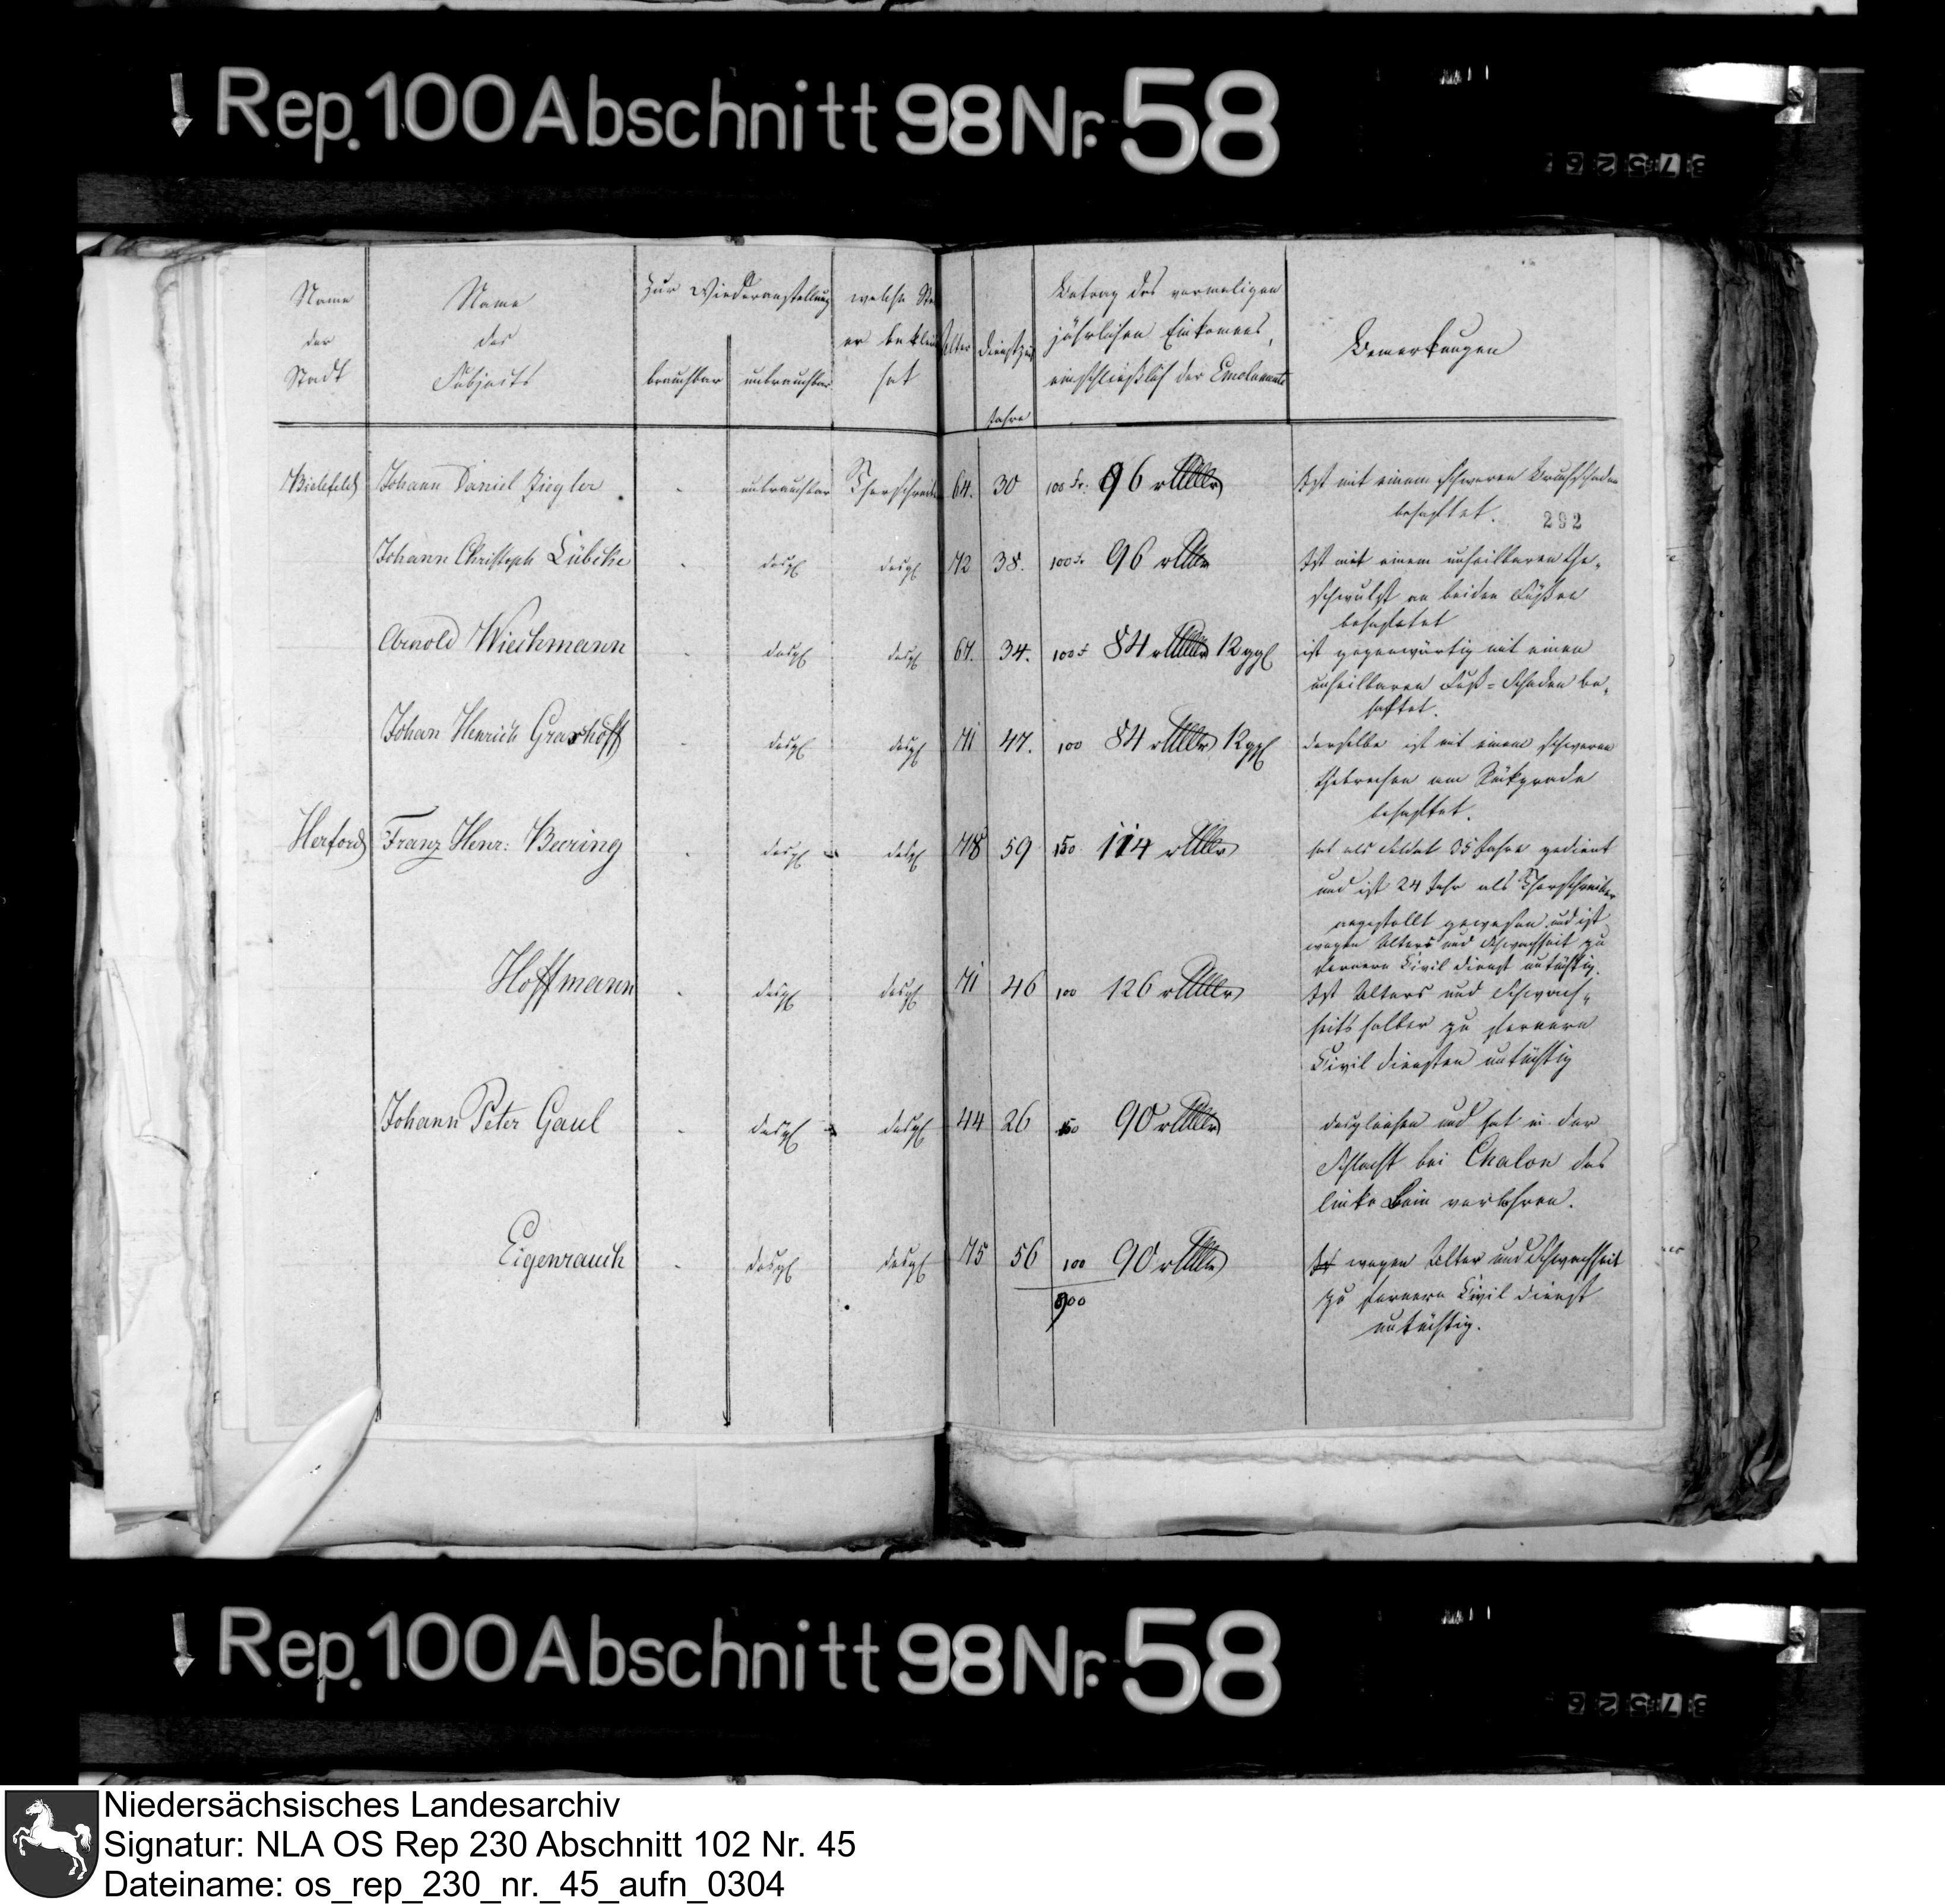 Rep. 100 Abschnitt 98 Nr. 58
37526
Name der Stadt
Name des Subjects
Zur Wiederanstellung
brauchbar
unbrauchbar
welche Ste
er beklei
hat
Alter
Dienstzeit
Jahre
Betrag des vormaligen
jährlichen Einkomens,
einschließlich der Emolumente
Bemerkungen
Bielefeld Johann Daniel Ziegler - unbrauchbar Thorschreiber 64. 30 100 Fr. 96 rthlr Ist mit einem schweren Bruchschaden
behaftet.
292
Johann Christoph Lübcke - desgl desgl 72 38. 100 Fr 96 rthlr Ist mit einem unheilbaren Ge-
schwulst an beiden Füßen
behaftet
Arnold Wiechmann - desgl desgl 67. 34. 100 f 84 rthlr 12 ggl ist gegenwärtig mit einen
unheilbaren Fuß=Schaden be-
haftet.
Johan Henrich Grashoff - desgl desgl 71 47. 100 84 rthlr 12 ggl derselbe ist mit einem schweren
Gebrechen am Rükgrade
behaftet.
Herford Franz Henr: Beering - desgl desgl 78 59 150 114 rthlr hat als Soldat 35 Jahre gedient
und ist 24 Jahr als Thorschreiber
angestellt gewesen und ist
wegen Alters und Schwachheit zu
fernern Civil dienst untüchtig.
Hoffmann - desgl desgl 71 46 100 126 rthlr Ist Alters und Schwach-
heits halber zu fernern
Civil diensten untüchtig
Johann Peter Gaul - desgl desgl 44 26 90 rthlr desgleichen und hat in der
Schlacht bei Chalon das
linke Bein verlohren.
Eigenrauch - desgl desgl 75 56 100 90 rthlr Ist wegen Alter und Schwachheit
zu fernern Civil dienst
untüchtig.
900
Rep. 100 Abschnitt 98 Nr. 58
37526
Niedersächsisches Landesarchiv
Signatur: NLA OS Rep 230 Abschnitt 102 Nr. 45
Dateiname: os_rep_230_nr._45_aufn_0304